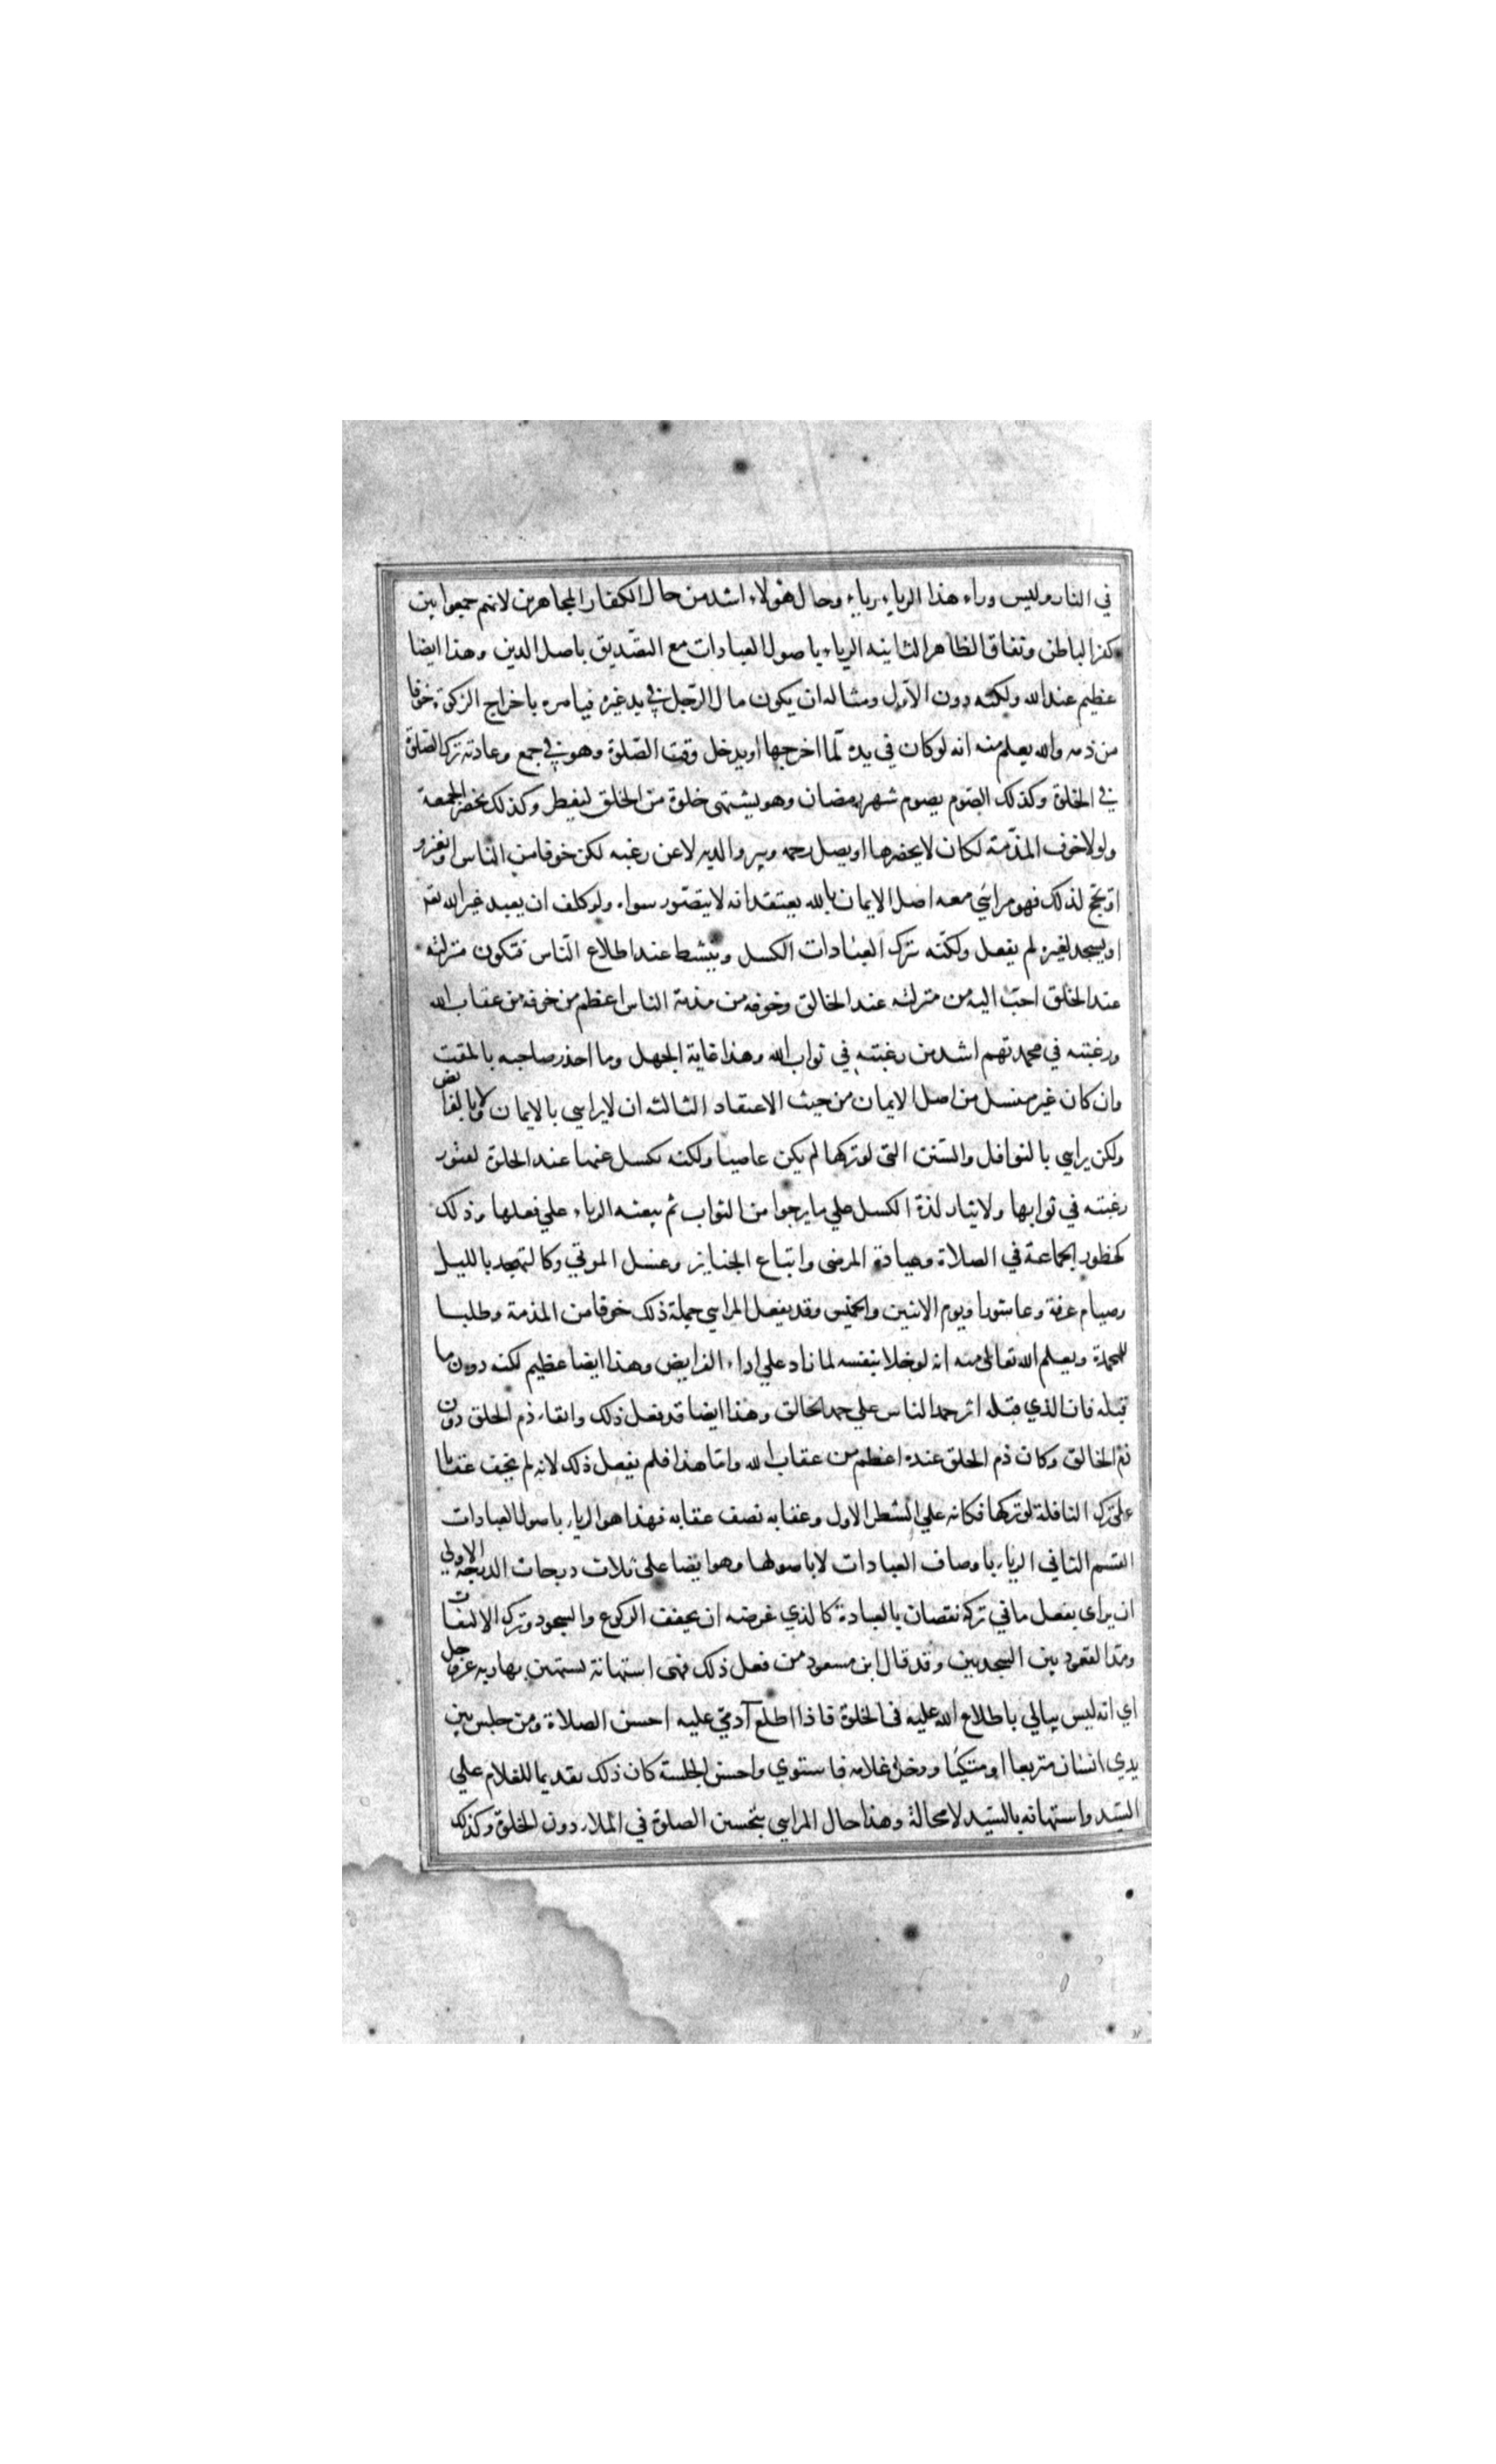 في النار وليس وراء هذا الرياء رياء وحال هولاء اشد من حال الكفار المجاهرين لانهم جمعوا بين
كفر الباطن ونفاق الظاهر الثانيه الرياء باصول العبادات مع التصديق باصل الدين وهذا ايضا
عظيم عند الله ولكنه دون الاول ومثاله ان يكون مال الرجل في يد غيره فيامره باخراج الزكوة خوفا
من ذمه والله يعلم منه انه لو كان في يده لما اخرجها او يدخل وقت الصلوة وهو في جمع وعادته ترك الصلوة
في الخلوة وكذلك الصوم يصوم شهر رمضان وهو يشتهى خلوة من الخلق ليفطر وكذلك يحضر الجمعة
ولولا خوف المذمة لكان لا يحضرها او يصل رحمه ويبر والديه لا عن رغبه لكن خوفا من الناس او يغزو
او يحج لذلك فهو مرائي معه اصل الايمان بالله يعتقد انه لا يتصور سواه ولو كلف ان يعبد غير الله
او يسجد لغيره لم يفعل ولكنه ترك العبادات الكسل وينشط عند اطلاع الناس فتكون منزلته
عند الخلق احب اليه من منزلته عند الخالق وخوفه من مذمة الناس اعظم من خوفه من عقاب الله
ورغبته في محمدتهم اشد من رغبته في ثواب الله وهذا غاية الجهل وما احذر صاحبه بالمقت
وان كان غير منسل من اصل الايمان من حيث الاعتقاد الثالثه ان لا يراىي بالايمان ولا بالفرائض
ولكن يراىي بالنوافل والسنن التي لو تركها لم يكن عاصيا ولكنه يكسل عنها عند الخلوة لفتور
رغبته في ثوابها ولايثار لذة الكسل علي ما يرجوا من الثواب ثم يبعثه الرياء علي فعلها وذلك
كحظور الجماعة في الصلاة وعيادة المرضى واتباع الجنايز وغسل الموتي وكالتهجد بالليل
وصيام عرفة وعاشورا ويوم الاثنين والخميس وقد يفعل المراىي جملة ذلك خوفا من المذمة وطلبا
للمحمدة ويعلم الله تعالى منه انه لو خلا بنفسه لما زاد علي اداء الفرايض وهذا ايضا عظيم لكنه دون ما
قبله فان الذي قبله اثر حمد الناس علي حمد الخالق وهذا ايضا قد فعل ذلك واتقاء ذم الخلق دون
ذم الخالق وكان ذم الخلق عنده اعظم من عقاب الله واما هذا فلم يفعل ذلك لانه لم يخف عقابا
على ترك النافلة لو تركها فكانه علي الشطر الاول وعقابه نصف عقابه فهذا هو الرياء باصول العبادات
القسم الثاني الرياء باوصاف العبادات لا باصولها وهو ايضا على ثلاث درجات الدرجة الاولي
ان يراى بفعل ما في تركه نقصان بالعبادة كالذي غرضه ان يخفف الركوع والسجود وترك الالتفات
ومد القعود بين السجدتين وقد قال ابن مسعود من فعل ذلك فهى استهانة يستهين بها ربه عز وجل
اي انه ليس يبالي باطلاع الله عليه في الخلوة فاذا اطلع آدمي عليه احسن الصلاة ومن جلس بين
يدي انسان متربعا او متكيا ودخل غلامه فاستوي واحسن الجلسة كان ذلك تقديما للغلام علي
السيد واستهانه بالسيد لا محالة وهذا حال المراىي بتحسين الصلوة في الملاء دون الخلوة وكذلك